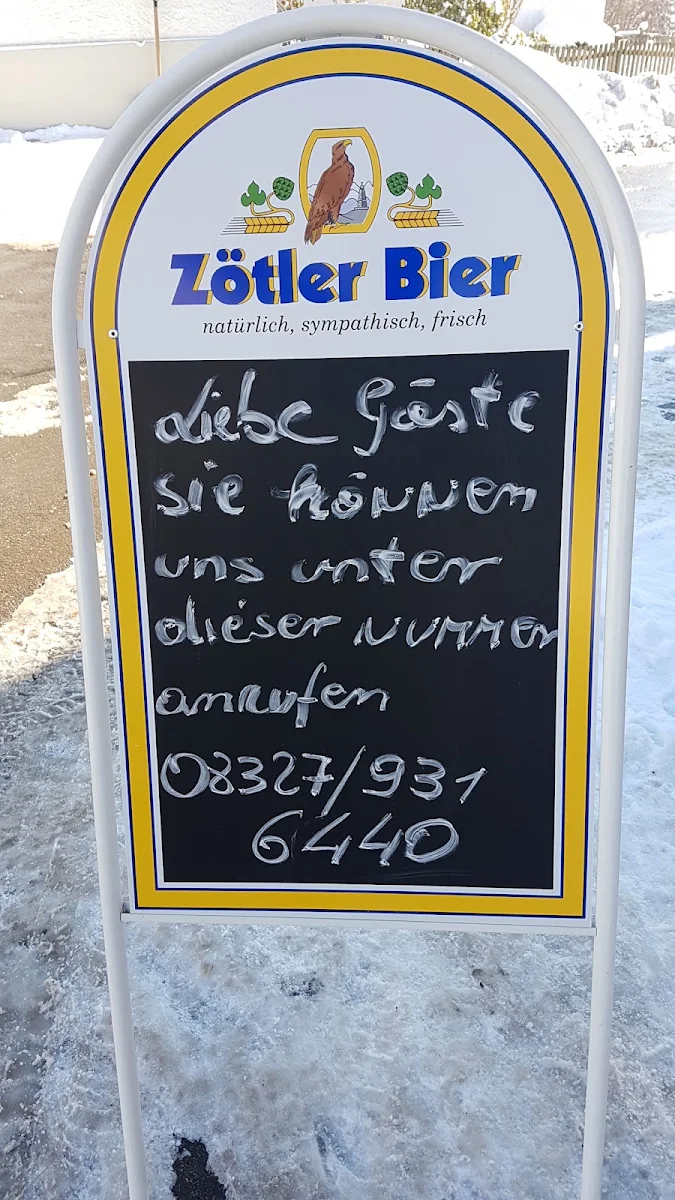 Zötler Bier
natürlich, sympathisch, frisch
Liebe Gäste
sie können
uns unter
dieser NUMMER
anrufen
08327/931
6440